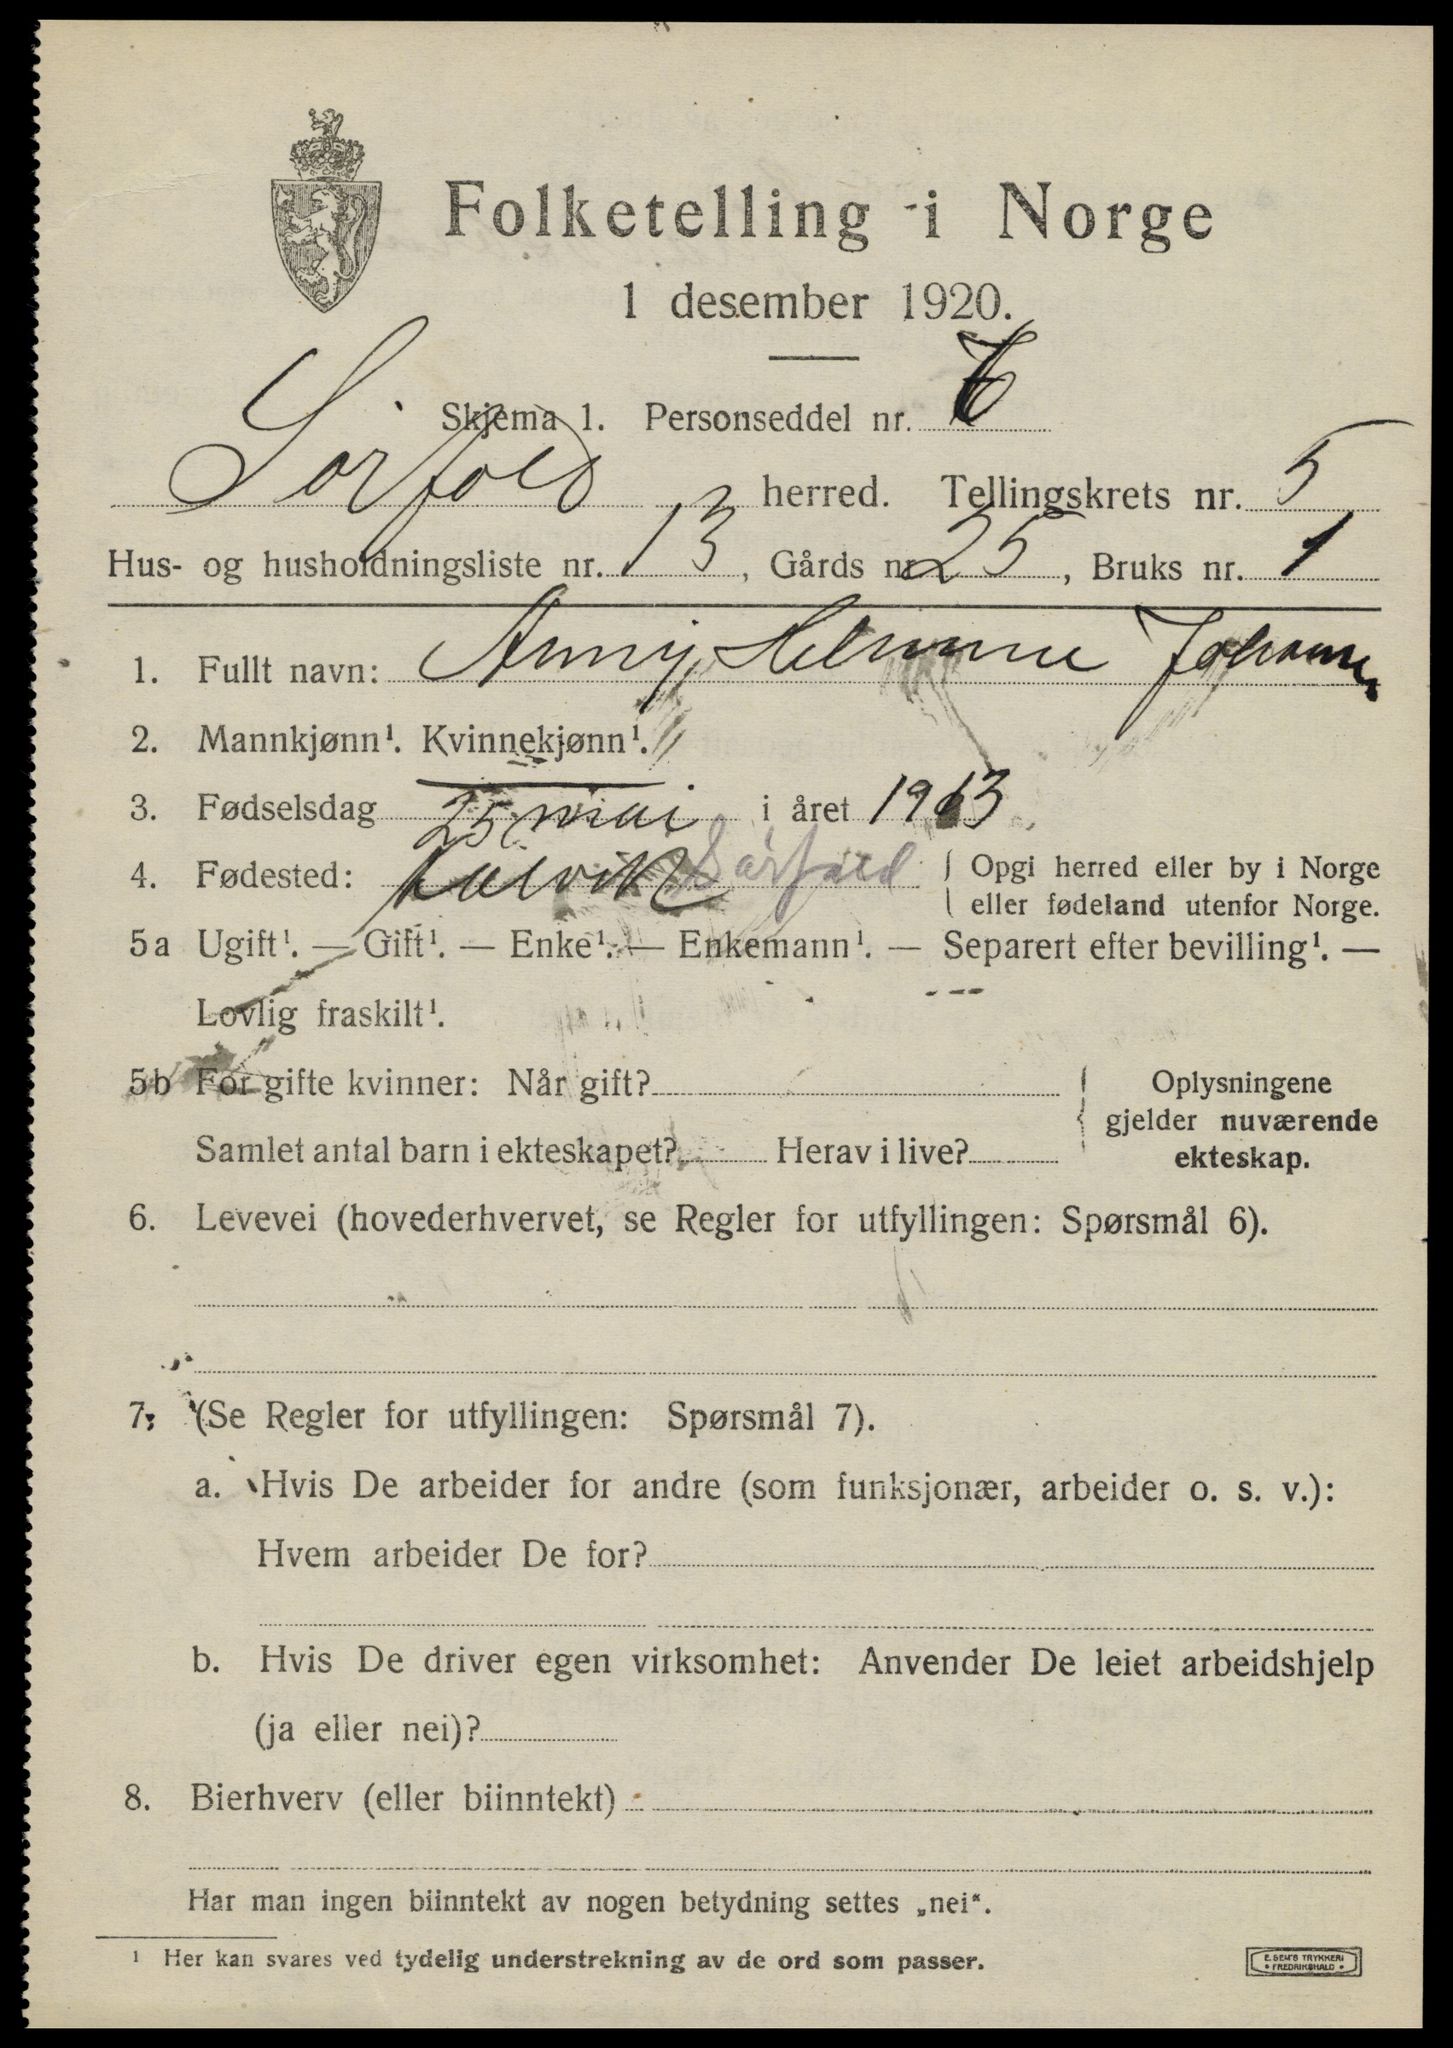 Folketelling i Norge
1 desember 1920.
Skjema 1. Personseddel nr.
Sørfold herred. Tellingskrets nr. 5
Hus- og husholdningsliste nr. 13, Gårds nr. 25, Bruks nr. 1
1. Fullt navn: Anny
2. Mannkjønn¹. Kvinnekjønn¹.
3. Fødselsdag 25 mai i året 1913
4. Fødested: Sørfold { Opgi herred eller by i Norge
eller fødeland utenfor Norge.
5a Ugift¹. — Gift¹. — Enke¹. — Enkemann¹. — Separert efter bevilling¹. —
Lovlig fraskilt¹.
5b For gifte kvinner: Når gift?
Samlet antal barn i ekteskapet? Herav i live?
{ Oplysningene
gjelder nuværende
ekteskap.
6. Levevei (hovederhvervet, se Regler for utfyllingen: Spørsmål 6).
7. (Se Regler for utfyllingen: Spørsmål 7).
a. Hvis De arbeider for andre (som funksjonær, arbeider o. s. v.):
Hvem arbeider De for?
b. Hvis De driver egen virksomhet: Anvender De leiet arbeidshjelp
(ja eller nei)?
8. Bierhverv (eller biinntekt)
Har man ingen biinntekt av nogen betydning settes „nei“.
¹ Her kan svares ved tydelig understrekning av de ord som passer.
E. SEM'S TRYKKERI
• FREDRIKSHALD •